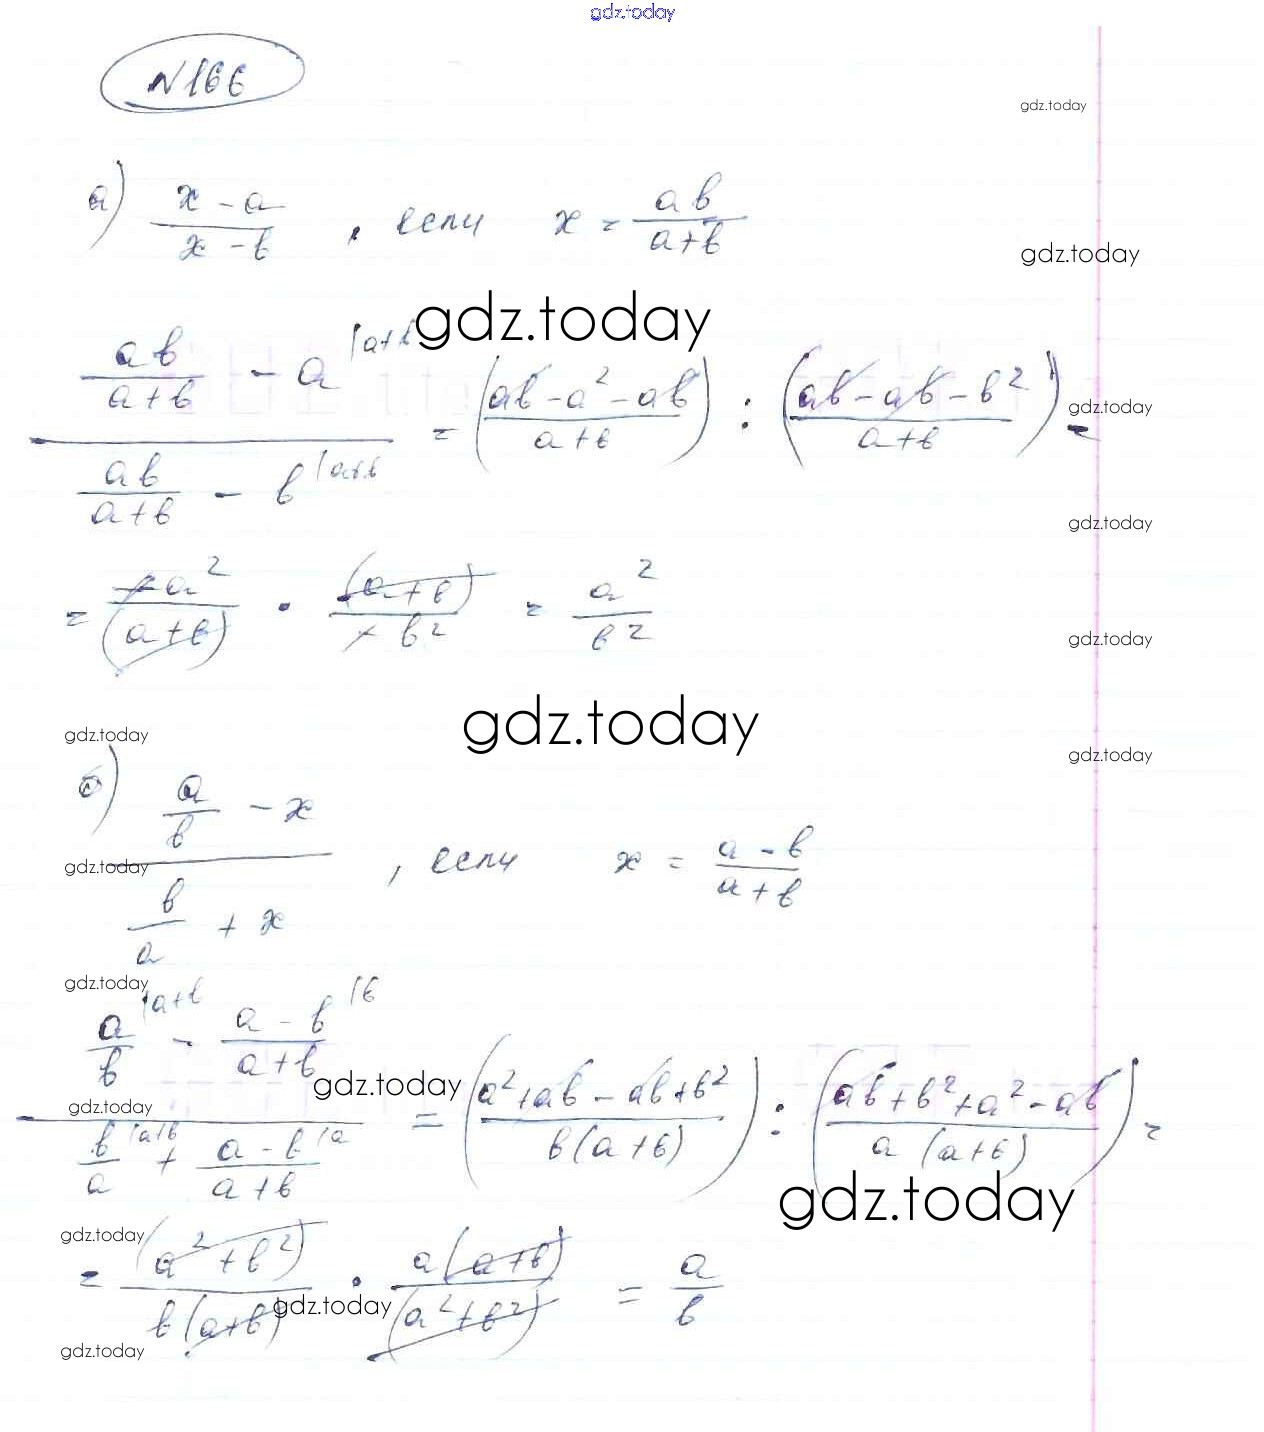 gdz.today
N166
gdz.today
а) (x - a)/(x - b), если x = ab/(a+b)
gdz.today
gdz.today
(ab/(a+b) - a |a+b)/(ab/(a+b) - b |a+b) = ((ab - a² - ab)/(a+b)) : ((ab - ab - b²)/(a+b)) =
gdz.today
gdz.today
= -a²/(a+b) · (a+b)/-b² = a²/b²
gdz.today
gdz.today
gdz.today
gdz.today
б) (a/b - x)/(b/a + x), если x = (a - b)/(a+b)
gdz.today
gdz.today
(a/b |a+b - (a - b)/(a+b) |b)/(b/a |a+b + (a - b)/(a+b) |a) = ((a² + ab - ab + b²)/(b(a+b))) : ((ab + b² + a² - ab)/(a(a+b))) =
gdz.today
gdz.today
gdz.today
gdz.today
= (a² + b²)/(b(a+b)) · a(a+b)/(a² + b²) = a/b
gdz.today
gdz.today